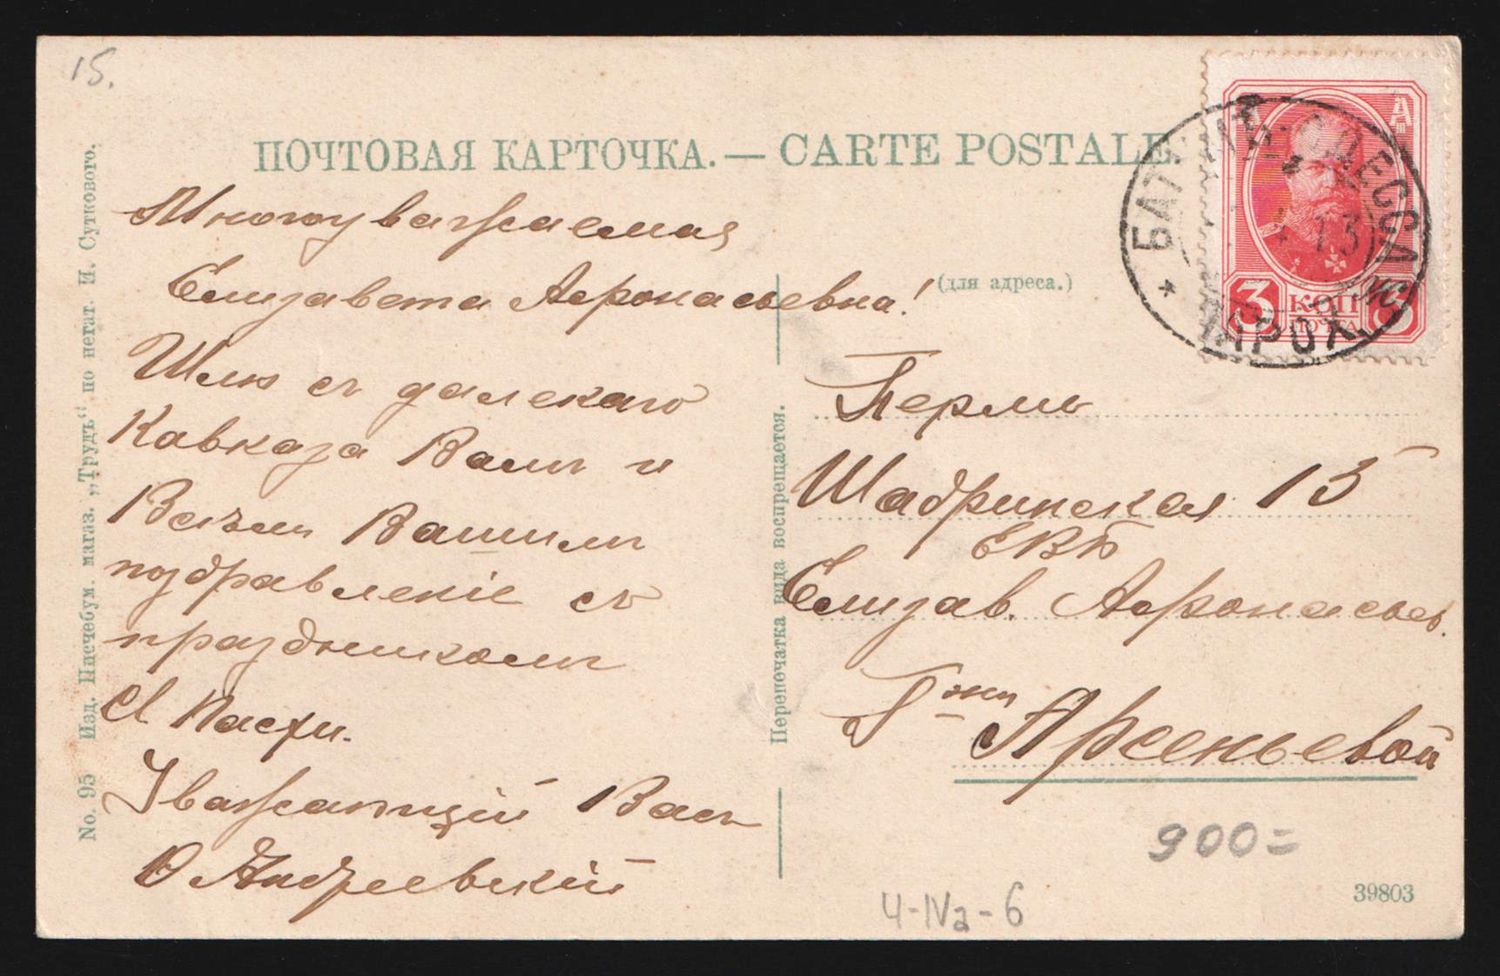 15.
ПОЧТОВАЯ КАРТОЧКА. — CARTE POSTALE
Многоуважаемая
Елизавета Афонасьевна!
Шлю съ далекаго
Кавказа Вамъ и
Всѣмъ Вашимъ
поздравленіе съ
праздникомъ
Св Пасхи.
Уважающій Васъ
Ю Андреевскій
(для адреса.)
Пермь
Шадринская 13
ЕВБ
Елизав. Афонасьев.
Г-жи
Арсеньевой
900=
Ч-IVа-6
39803
No. 95 Изд. Писчебум. магаз. „Трудъ“ по негат. И. Сутковото.
Перепечатка вида воспрещается.
БАТУМЪ ОДЕССА
ПАРОХ.
13
3 КОП 3
ПОЧТА